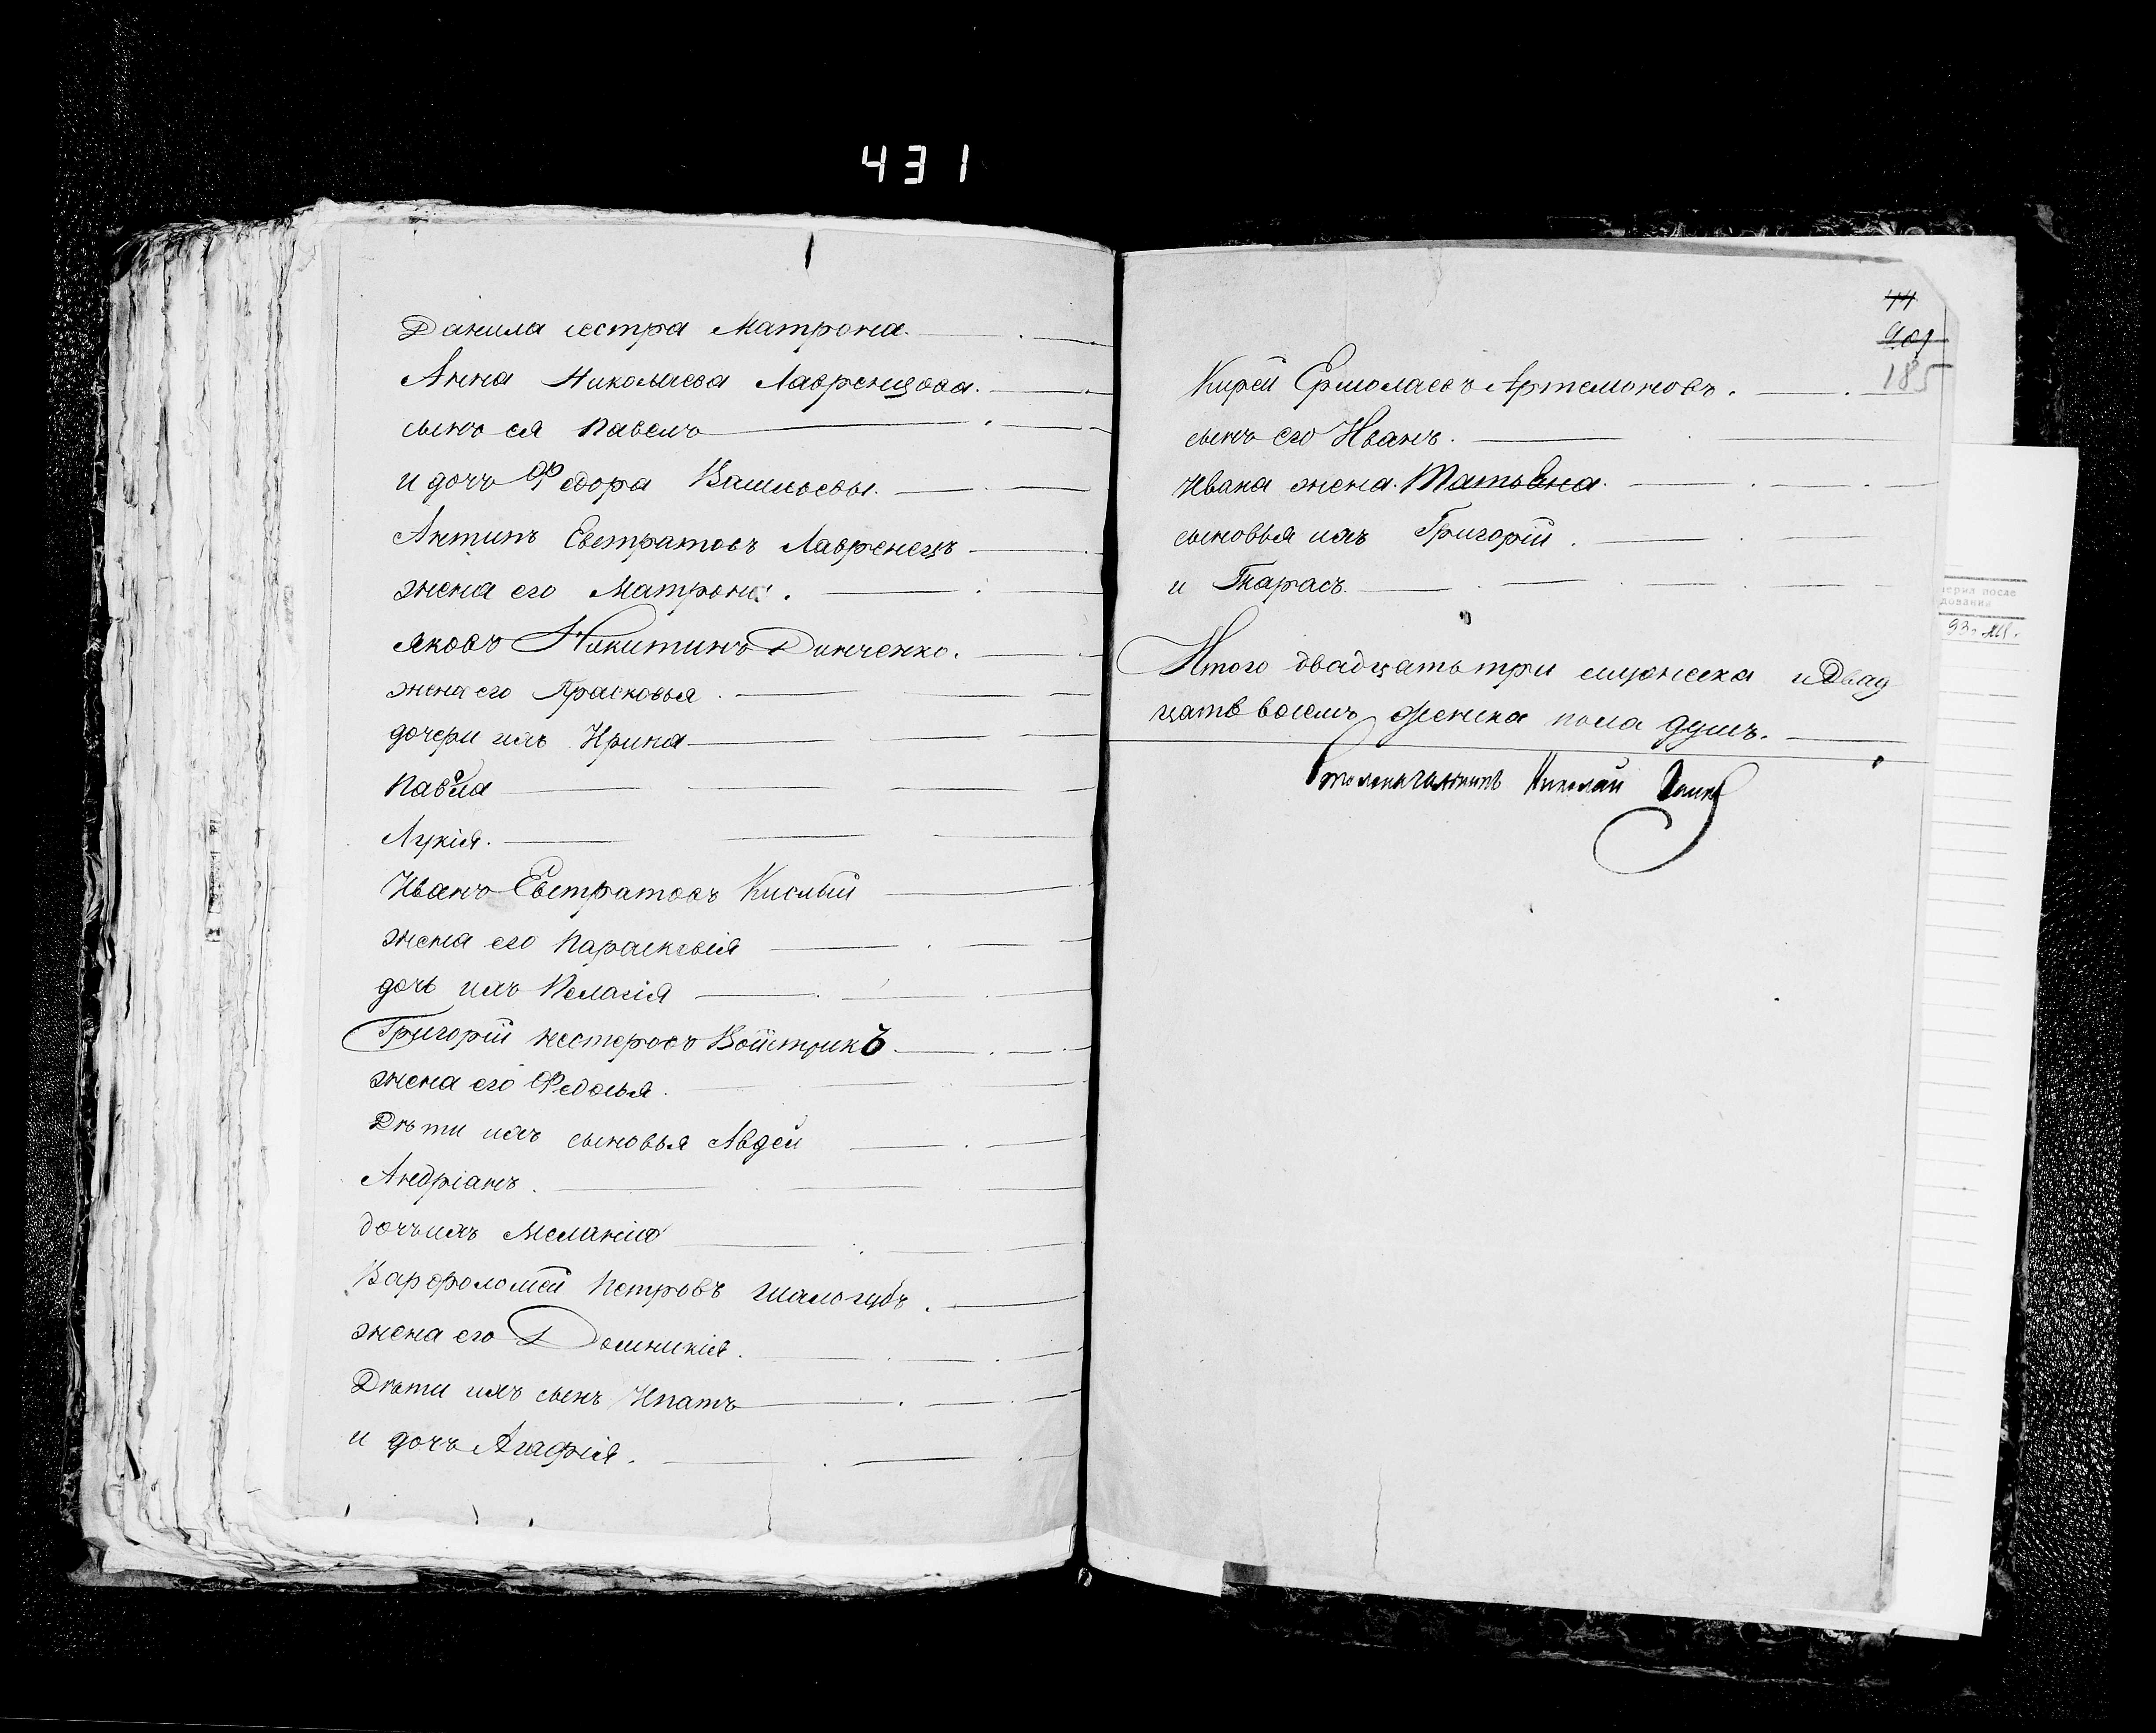 431
Данила сестра Матрона.
Анна Николаева Лавренцова.
сынъ ея Павелъ
и дочь Федора Васильевы.
Антипъ Евстратовъ Лавренецъ
жена его Матрона.
Яковъ Никитинъ Динченко.
жена его Прасковья.
дочери ихъ Ирина
Павла
Лукія.
Иванъ Евстратовъ Кислый
жена его Параскевія
дочь ихъ Пелагія
Григорій Нестеровъ Войтрикъ
жена его Федосья.
Дѣти ихъ сыновья Авдей
Андріанъ.
дочь ихъ Меланія
Варфоломей Петровъ Шалогубъ.
жена его Домникія.
Дѣти ихъ сынъ Ипатъ
и дочь Агафія.
44
901
185
Кирей Ермолаевъ Артемоновъ.
сынъ его Иванъ.
Ивана жена. Татьяна.
сыновья ихъ Григорій.
и Тарасъ.
Итого двадцать три мужеска и двад
цать восемь женска пола душъ.
Столоначальникъ Николай
дования
93г.